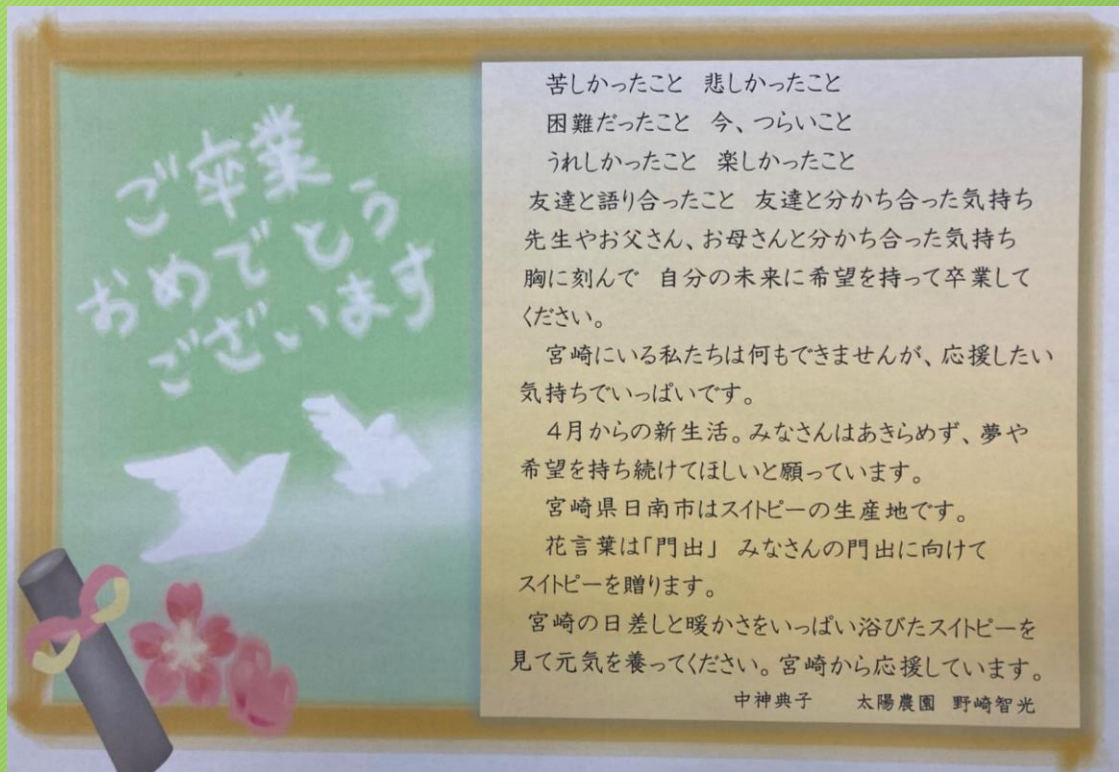 ご卒業
おめでとう
ございます
苦しかったこと　悲しかったこと
困難だったこと　今、つらいこと
うれしかったこと　楽しかったこと
友達と語り合ったこと　友達と分かち合った気持ち
先生やお父さん、お母さんと分かち合った気持ち
胸に刻んで　自分の未来に希望を持って卒業して
ください。
宮崎にいる私たちは何もできませんが、応援したい
気持ちでいっぱいです。
４月からの新生活。みなさんはあきらめず、夢や
希望を持ち続けてほしいと願っています。
宮崎県日南市はスイトピーの生産地です。
花言葉は「門出」　みなさんの門出に向けて
スイトピーを贈ります。
宮崎の日差しと暖かさをいっぱい浴びたスイトピーを
見て元気を養ってください。宮崎から応援しています。
中神典子　　太陽農園　野崎智光